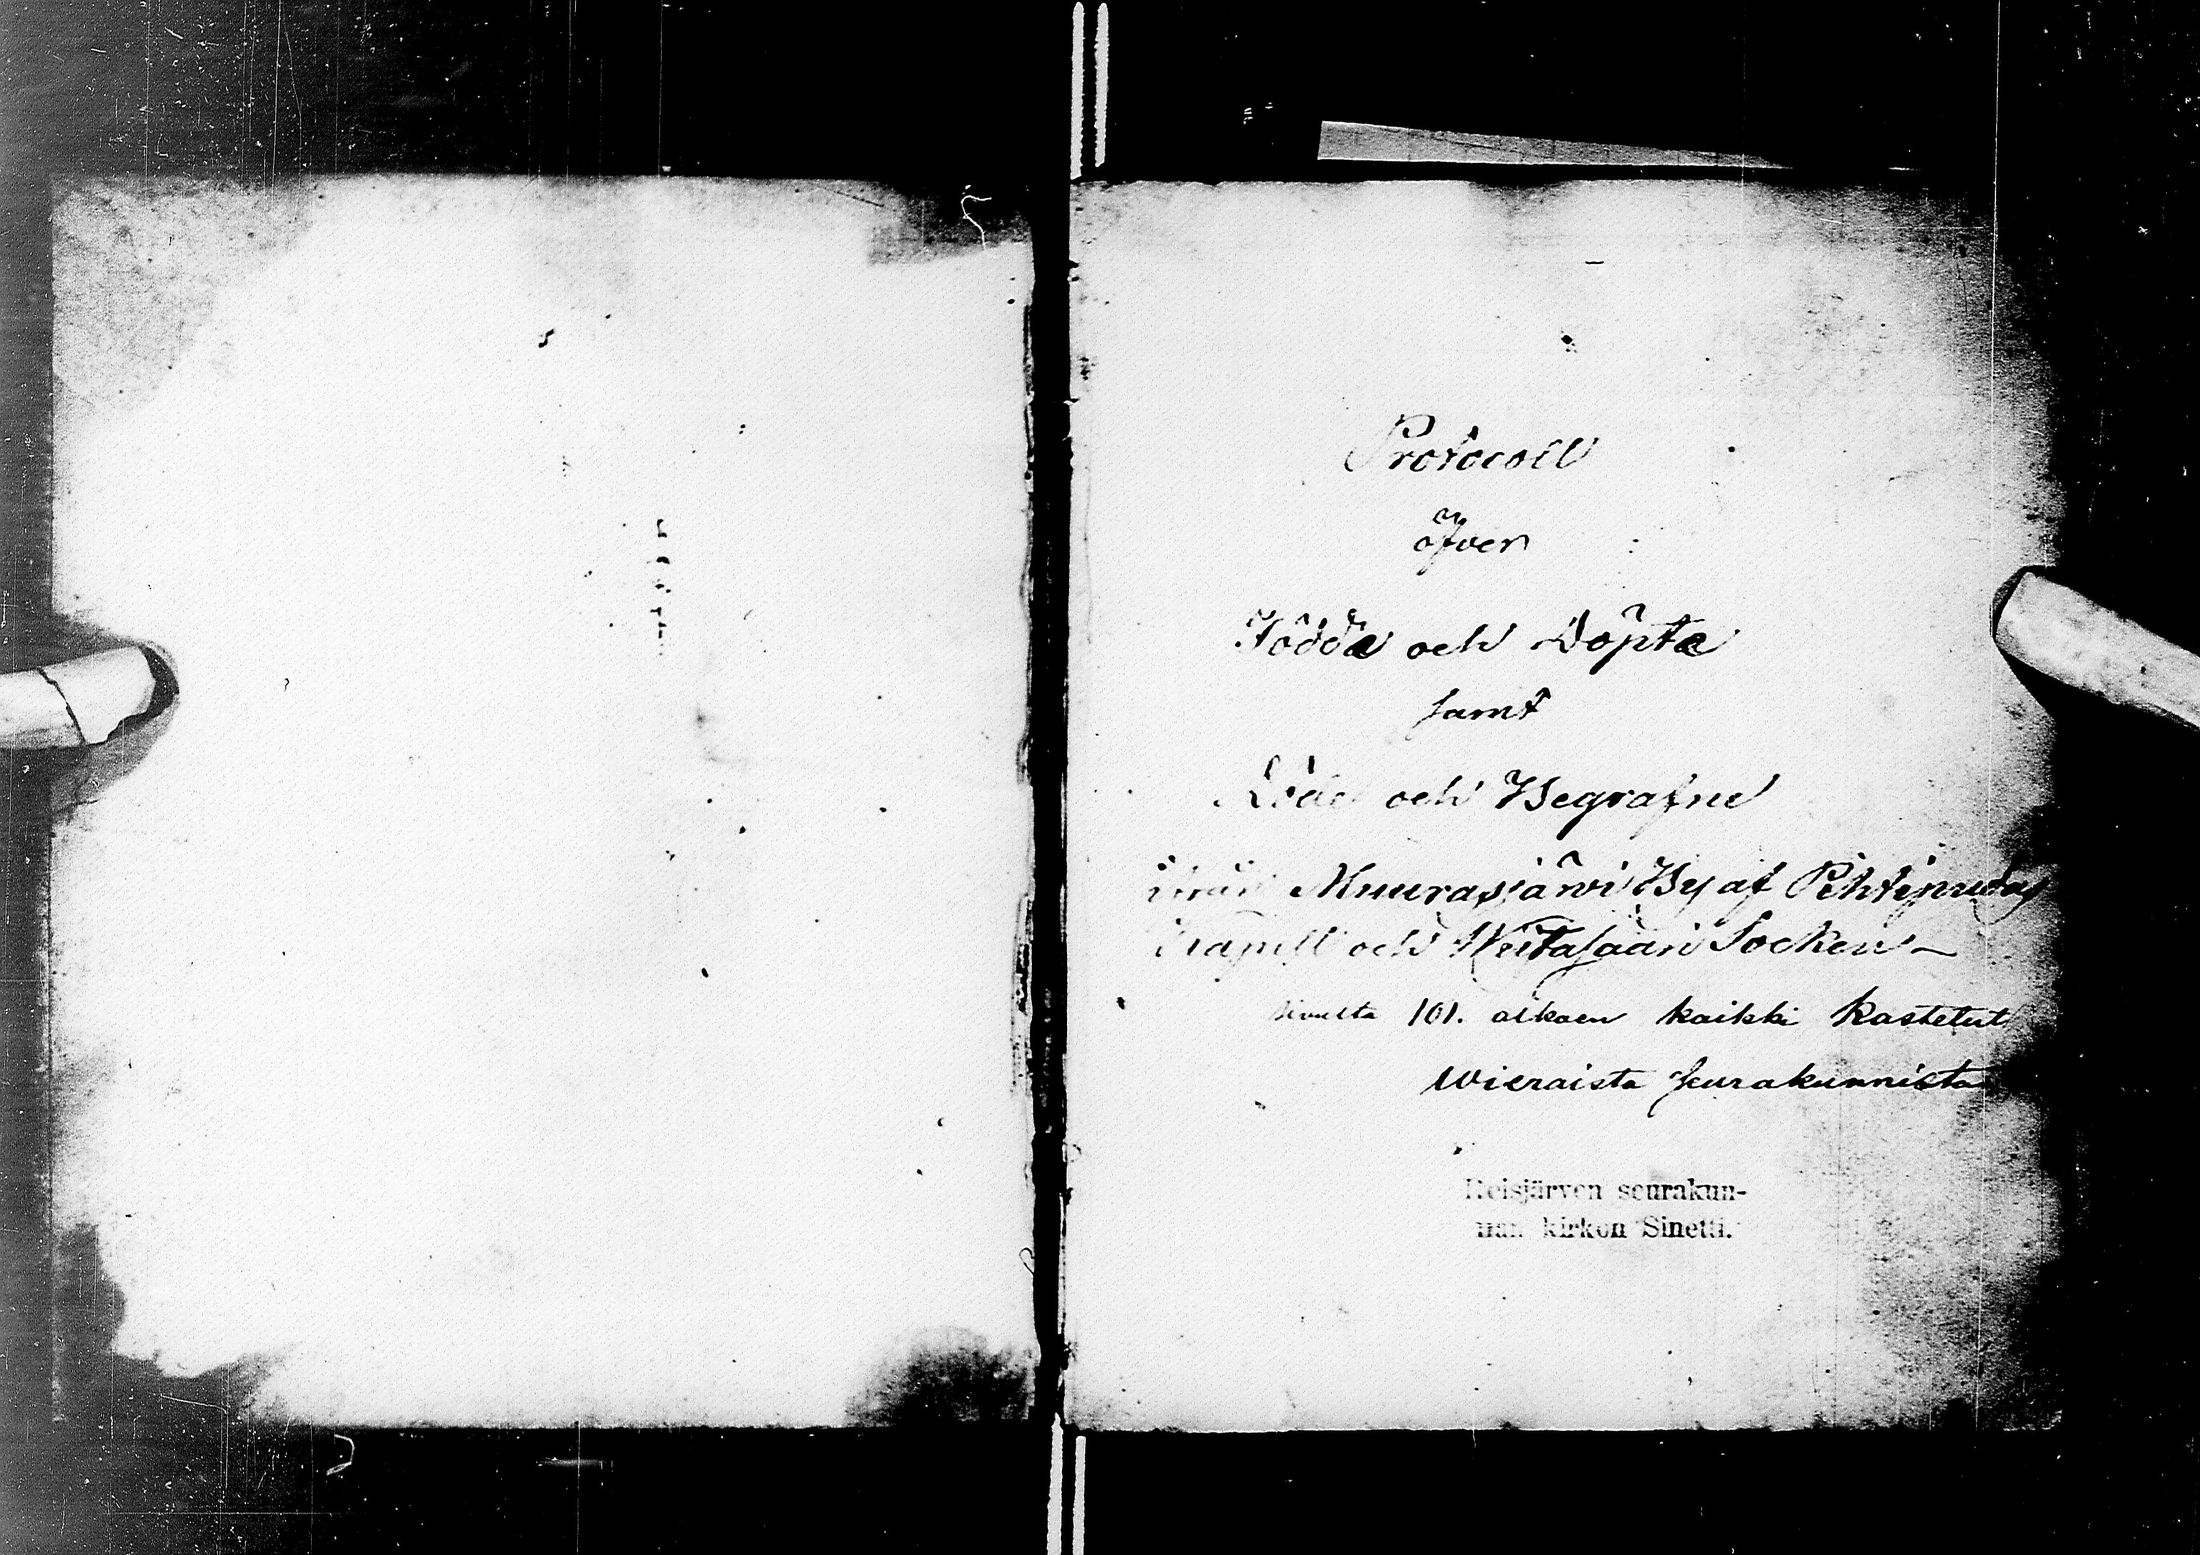 Protocoll
öfver
Födda och Döpta
samt
Döde och Begrafne
ifrån Muurasjärvi By af Pihtipudas
Capell och Wiitasaari Socken –
sivulta 101. alkaen kaikki kastetut
wieraista seurakunnista
Reisjärven seurakun-
nan kirkon Sinetti.